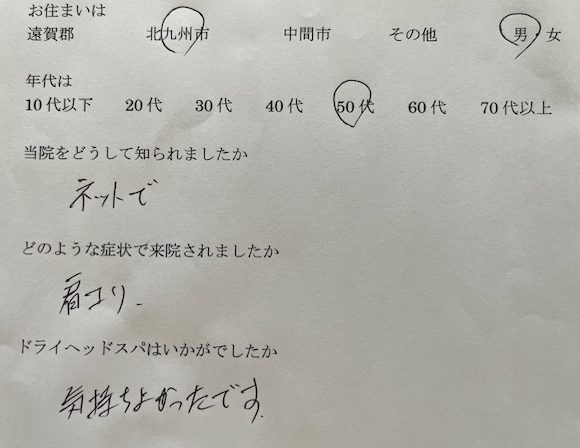 お住まいは
遠賀郡 北九州市 中間市 その他 男・女
年代は
10代以下 20代 30代 40代 50代 60代 70代以上
当院をどうして知られましたか
ネットで
どのような症状で来院されましたか
肩コリ.
ドライヘッドスパはいかがでしたか
気持ちよかったです.